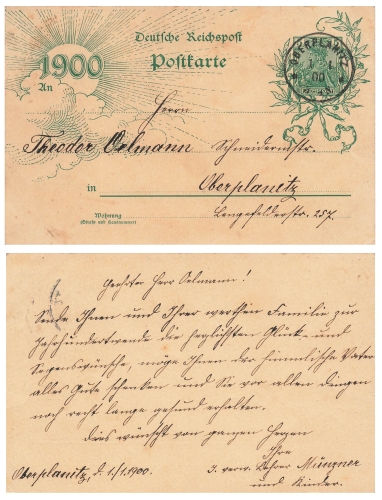 Deutsche Reichspost
Postkarte
1900
An
OBERPLANITZ
Herrn
Theodor Oelmann Schneidermstr.
in Oberplanitz
Wohnung
(Straße und Hausnummer)
Lengefelderstr. 257.
Geehrter Herr Oelmann!
Sende Ihnen und Ihrer werthen Familie zur
Jahrhundertwende die herzlichsten Glück- und
Segenswünsche, möge Ihnen der himmlische Vater
alles Gute schenken und Sie vor allen Dingen
noch recht lange gesund erhalten.
Dies wünscht von ganzen Herzen
Ihre
Oberplanitz, d. 1./1. 1900. verw. Lehrer Münzner
und Kinder.